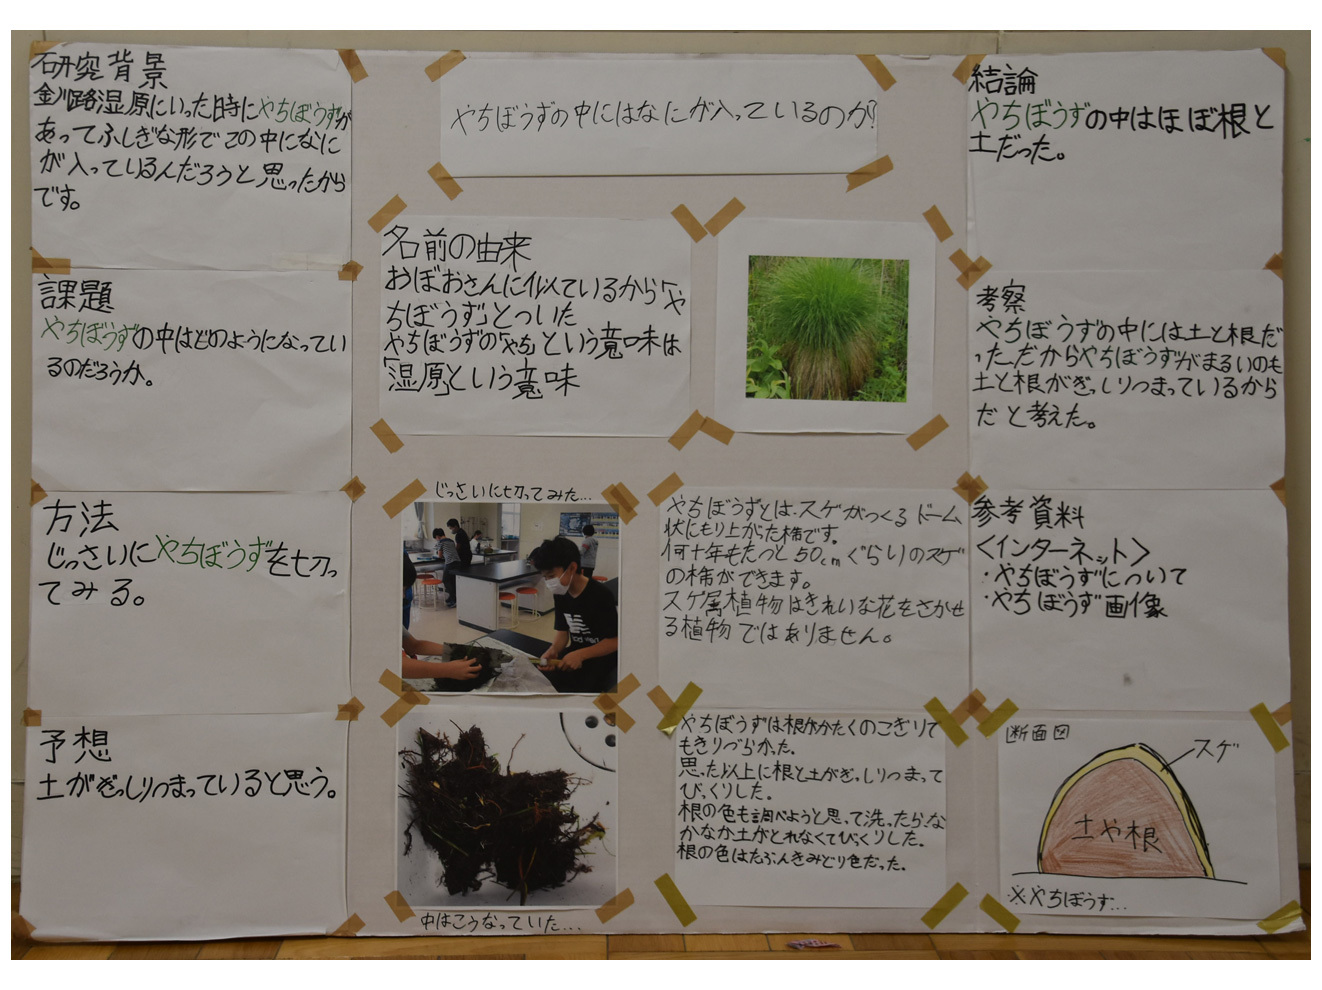 やちぼうずの中にはなにが入っているのか?
研究背景
釧路湿原にいった時にやちぼうずが
あってふしぎな形でこの中になに
が入っているんだろうと思ったから
です。
課題
やちぼうずの中はどのようになってい
るのだろうか。
方法
じっさいにやちぼうずを切っ
てみる。
予想
土がぎっしりつまっていると思う。
名前の由来
おぼおさんに似ているから「や
ちぼうず」とついた
やちぼうずの「やち」という意味は
「湿原」という意味
じっさいに切ってみた...
中はこうなっていた...
やちぼうずとは、スゲがつくるドーム
状にもり上がった株です。
何十年もたつと50cmぐらいのスゲ
の株ができます。
スゲ属植物はきれいな花をさかせ
る植物ではありません。
やちぼうずは根がかたくのこぎりで
もきりづらかた。
思った以上に根と土がぎっしりつまって
びっくりした。
根の色も調べようと思って洗ったら、な
かなか土がとれなくてびくりした。
根の色はたぶんきみどり色だった。
結論
やちぼうずの中はほぼ根と
土だった。
考察
やちぼうずの中には土と根だ
った。だからやちぼうずがまるいのも
土と根がぎっしりつまっているから
だと考えた。
参考資料
<インターネット>
・やちぼうずについて
・やちぼうず画像
断面図
スゲ
土や根
※やちぼうず...